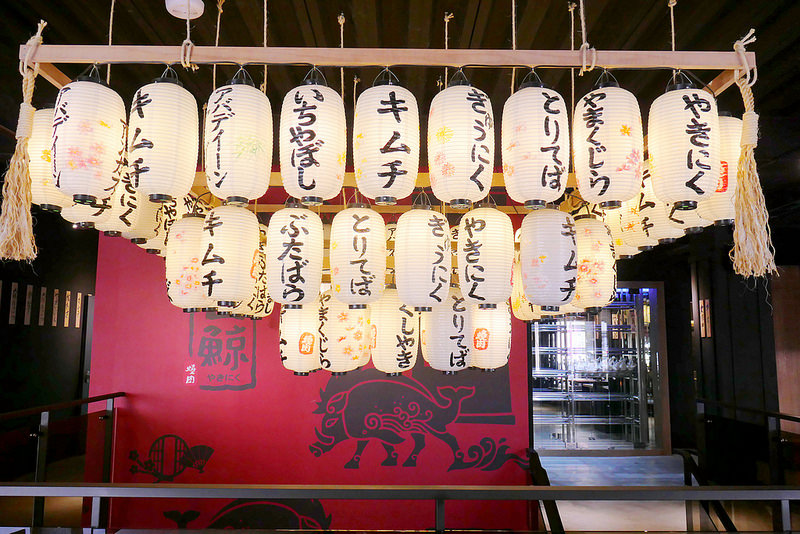 アバディーン
キムチ
アバディーン
いちやぼし
キムチ
ぎゅうにく
とりてば
やまくじら
やきにく
やきにく
キムチ
ぶたばら
とりてば
ぎゅうにく
やきにく
キムチ
キムチ
やまくじら
くしやき
とりてば
鯨
やきにく